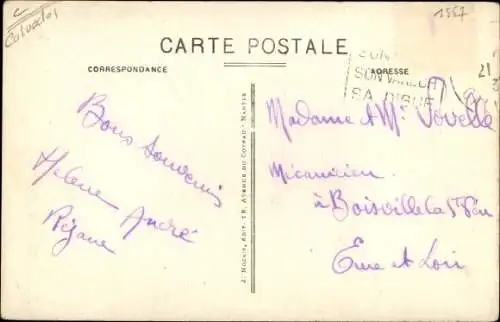 C
Calvados
1557
CARTE POSTALE
CORRESPONDANCE
ADRESSE
SON VAREUX
SA DIGUE
21
Bons Souvenirs
Helene André
Réjane
J. Nozais, édit. 18, Avenue du Coteau - Nantes
Madame et Mr
Mécanicien
à Boisville la St Père
Eure et Loir